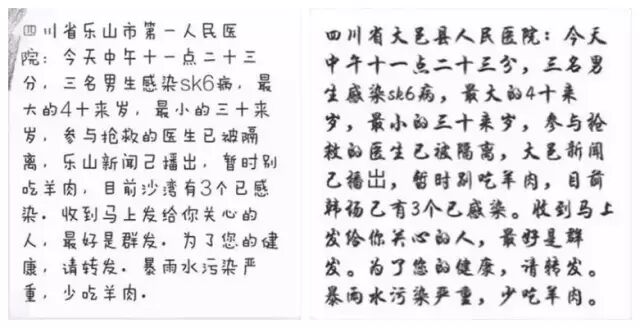 四川省乐山市第一人民医
院：今天中午十一点二十三
分，三名男生感染sk6病，最
大的4十来岁，最小的三十来
岁，参与抢救的医生已被隔
离，乐山新闻己播出，暂时别
吃羊肉，目前沙湾有3个已感
染．收到马上发给你关心的
人，最好是群发．为了您的健
康，请转发．暴雨水污染严
重，少吃羊肉．
四川省大邑县人民医院：今天
中午十一点二十三分，三名男
生感染sk6病，最大的4十来
岁，最小的三十来岁，参与抢
救的医生已被隔离，大邑新闻
己播出，暂时别吃羊肉，目前
韩场己有3个已感染。收到马上
发给你关心的人，最好是群
发。为了您的健康，请转发。
暴雨水污染严重，少吃羊肉。